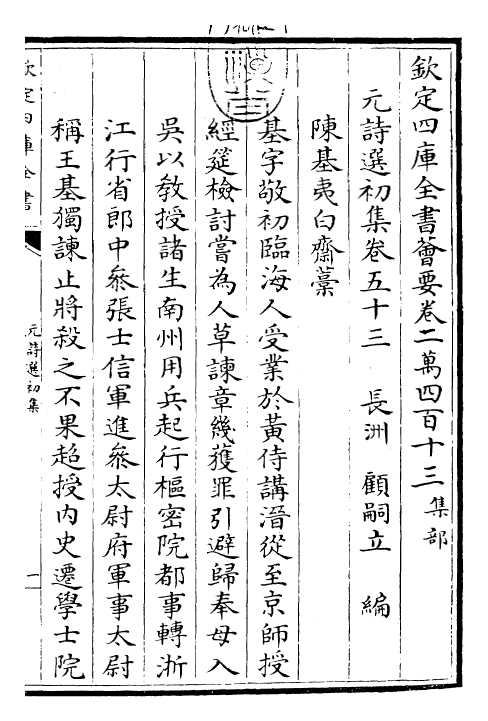 欽定四庫全書薈要卷二萬四百十三 集部
元詩選初集卷五十三 長洲 顧嗣立 編
陳基夷白齋藁
基字敬初臨海人受業於黃侍講溍從至京師授
經筵檢討嘗為人草諫章幾獲罪引避歸奉母入
吳以教授諸生南州用兵起行樞密院都事轉浙
江行省郎中叅張士信軍進叅太尉府軍事太尉
稱王基獨諫止將殺之不果超授內史遷學士院
欽定四庫全書
元詩選初集
一